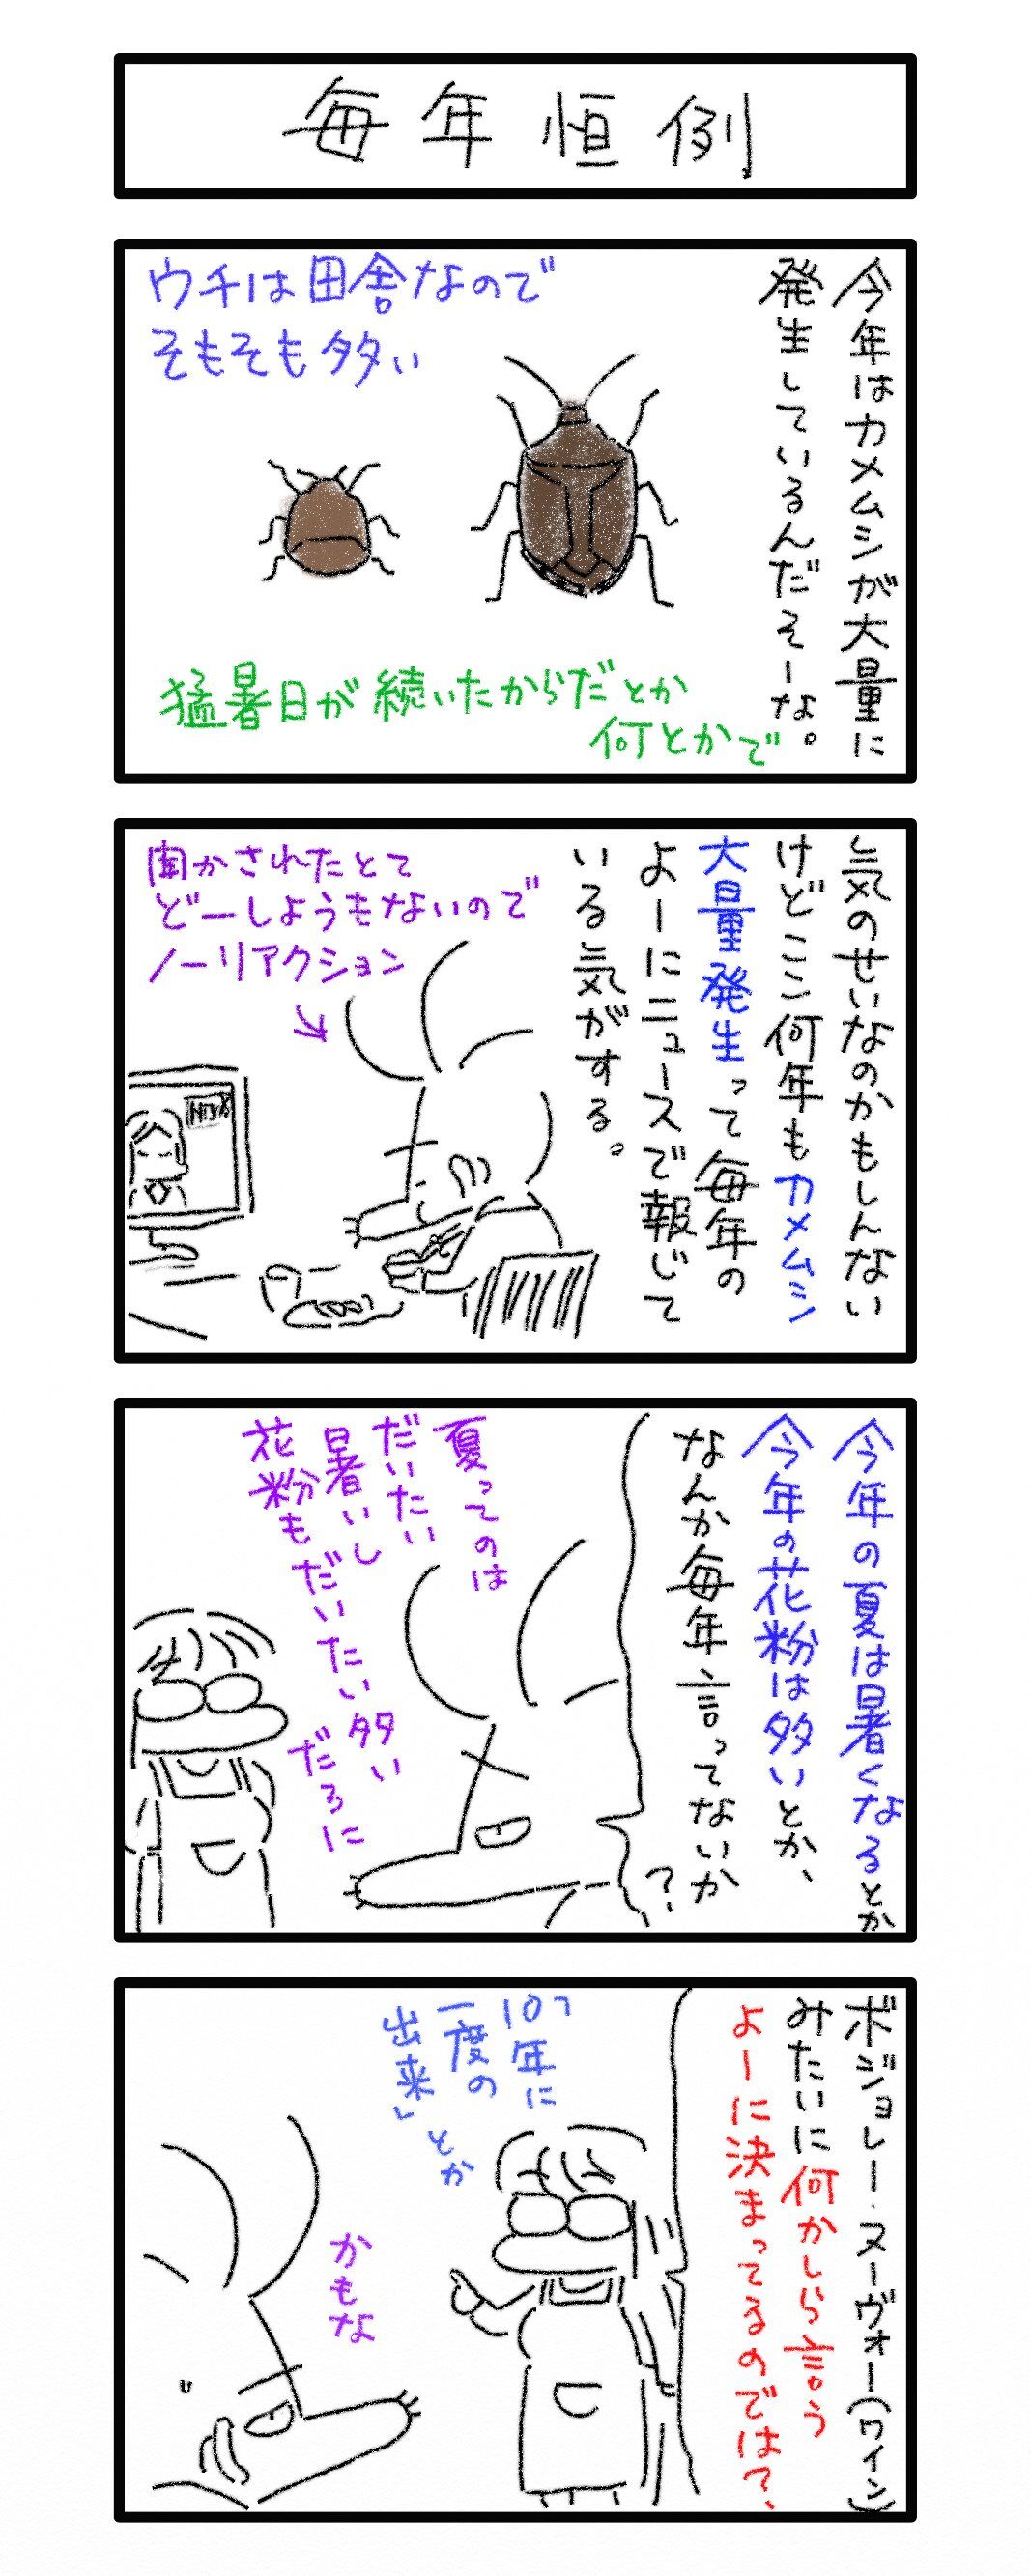 毎年恒例
今年はカメムシが大量に
発生しているんだそーな。
ウチは田舎なので
そもそも多い
猛暑日が続いたからだとか
何とかで
気のせいなのかもしんない
けどここ何年もカメムシ
大量発生って毎年の
よーにニュースで報じて
いる気がする。
聞かされたとて
どーしようもないので
ノーリアクション
今年の夏は暑くなるとか
今年の花粉は多いとか、
なんか毎年言ってないか
?
夏ってのは
だいたい
暑いし
花粉も
だいたい多い
だろに
ボジョレー・ヌーヴォー(ワイン)
みたいに何かしら言う
よーに決まってるのでは?、
「10年に
一度の
出来」とか
かもな